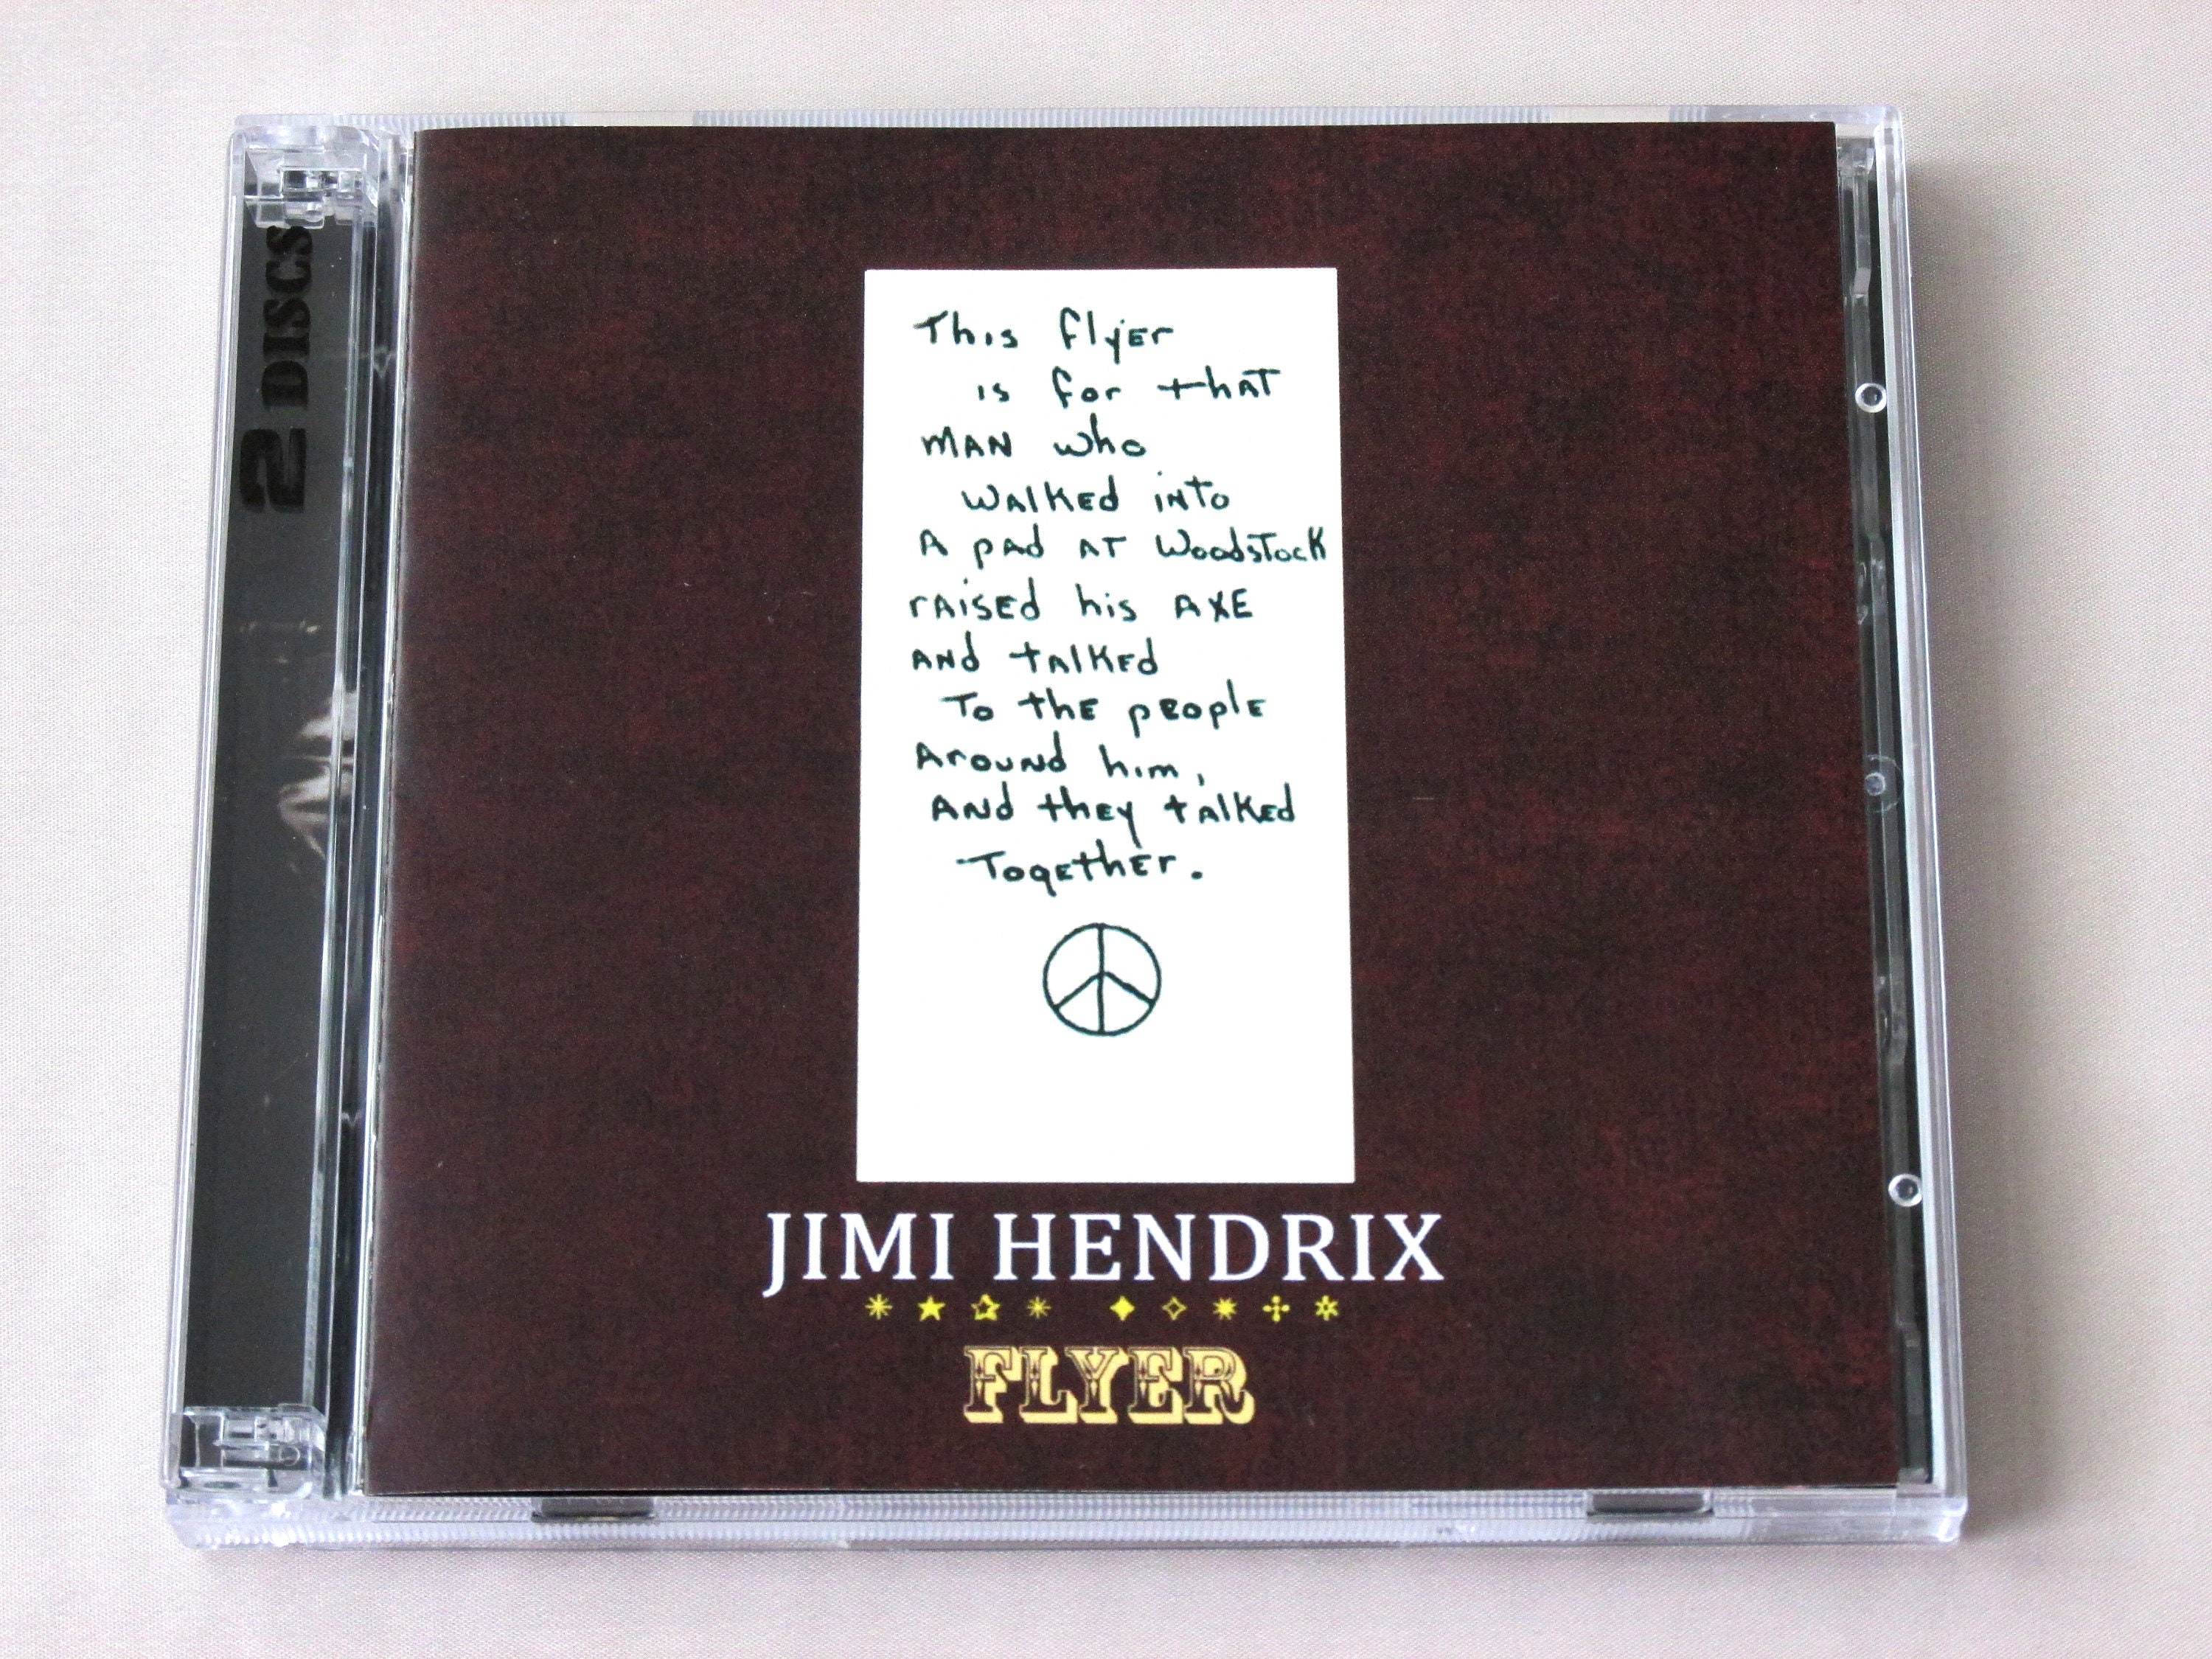 2 DISCS
This flyer
is for that
MAN who
walked into
A pad AT Woodstock
raised his AXE
and talked
To the people
Around him,
And they talked
Together.
JIMI HENDRIX
FLYER